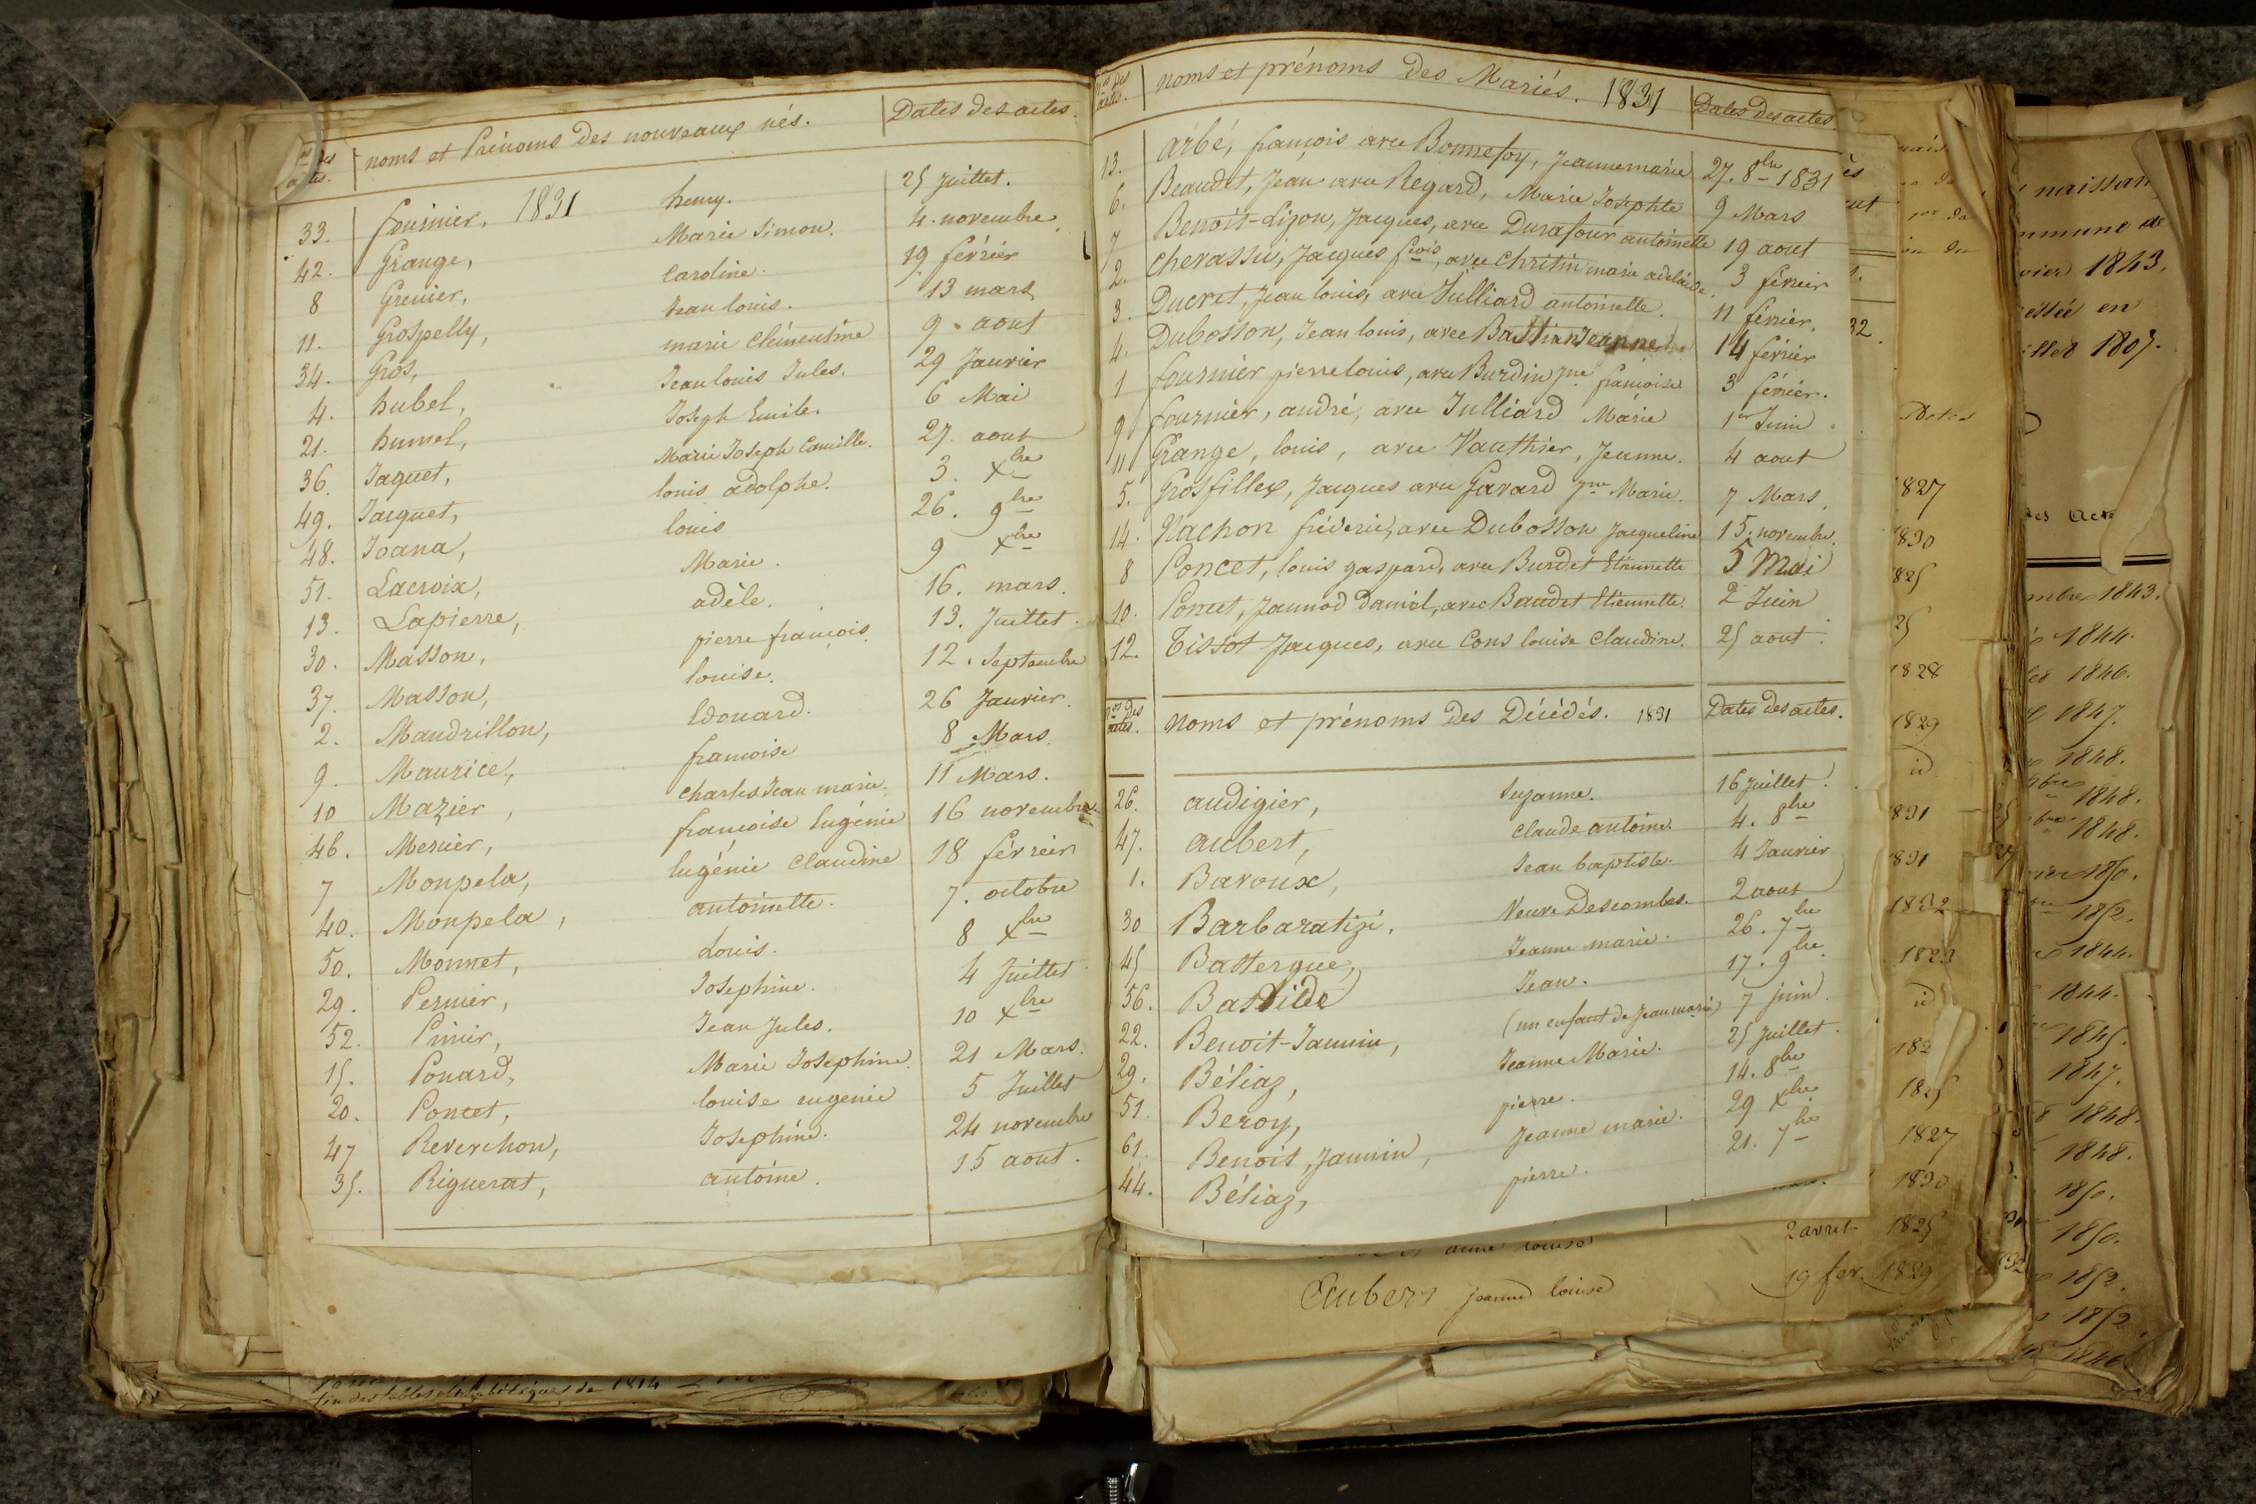 noms et Prénoms des nouveaux nés. Dates des actes.
1831
33. fournier, henry. 25 Juillet.
42. Grange, Marie Simon. 4. novembre
8 Grenier, Caroline. 19 février
11. Grospelly, Jean louis. 13 mars
34. Gros, marie Clémentine 9. aout
4. hubel, Jean louis Jules. 29 Janvier
21. humel, Joseph Emile. 6 Mai
36. Jaquet, Marie Joseph Camille. 27 aout
49. Jacquet, louis adolphe. 3. Xbre
48. Joana, louis 26. 9bre
51. Lacroix, Marie. 9 Xbre
13. Lapierre, adèle. 16. mars.
30. Masson, pierre françois. 13. Juillet.
37. Masson, louise. 12. Septembre
2. Mandrillon, Edouard. 26 Janvier.
9. Maurice, francoise 8 Mars
10 Mazier, Charles Jean marie. 11 Mars.
46. Mesnier, françoise Eugénie 16 novembre
7 Monpela, Eugénie Claudine 18 février
40. Monpela, antoinette. 7. octobre
50. Monnet, Louis. 8 Xbre
29. Pernier, Josephine. 4 Juillet
52. Pinier, Jean Jules. 10 Xbre
15. Ponard, Marie Josephine. 21 Mars.
20. Poncet, louise eugenie 5 Juillet
47 Reverchon, Josephine. 24 novembre
35. Riguerat, antoine. 15 aout.
nos des actes. noms et prénoms des Mariés. 1831 Dates des actes.
13. arbé, françois avec Bonnefoy, Jeannemarie 27. 8bre 1831
6. Beaudet, Jean avec Regard, Marie Josephte 9 Mars
7 Benoit-Lizon, Jacques, avec Durafour antoinette 19 aout
2. Chevassu, Jacques fcois, avec Chritin marie adélaïde. 3 février
3. Ducret, Jean louis, avec Julliard antoinette. 11 février.
4. Dubosson, Jean louis, avec Bastian Jeanne 14 février
1 fournier pierre louis, avec Burdin Jne françoise 3 février.
9 fournier, andré, avec Julliard Marie 1er Juin
11 Grange, louis, avec Vauthier, Jeanne. 4 aout
5. Grosfillex, Jacques avec Gavard Jne Marie. 7 Mars.
14. Nachon fréderic, avec Dubosson Jacqueline 15. novembre.
8 Poncet, louis gaspard, avec Burdet Etiennette 5 Mai
10. Poncet, Jaunod daniel, avec Baudet Etiennette. 2 Juin
12. Tissot Jacques, avec Cons louise Claudine. 25 aout
nos des actes. noms et prénoms des Décédés. 1831 Dates des actes.
26. audigier, Suzanne. 16 Juillet.
47. aubert, Claude antoine. 4. 8bre
1. Baroux, Jean baptiste. 4 Janvier
30 Barbaratizi, Veuve Descombes. 2 aout
45 Bastergue, Jeanne marie. 26. 7bre
56. Bastide Jean. 17. 9bre
22. Benoit-Jannin, (un enfant de Jean marie) 7 juin.
29. Béliaz, Jeanne Marie. 25 Juillet.
51. Beroy, pierre. 14. 8bre
61. Benoit, Jannin, Jeanne marie. 29 Xbre
44. Béliaz, pierre. 21. 7bre
2 avril 1825
Aubert jeanne louise 19 fev. 1829
1827
1830
1825
25
1828
1829
id
1831
1831
1832
1823
id
1825
1827
1830
naissan
1843.
1807.
1843.
1844.
1846.
1847.
1848.
1848.
1848.
1850.
1852.
1844.
1844.
1845.
1847.
1848.
1848.
1850.
1850.
1852.
1852
1846